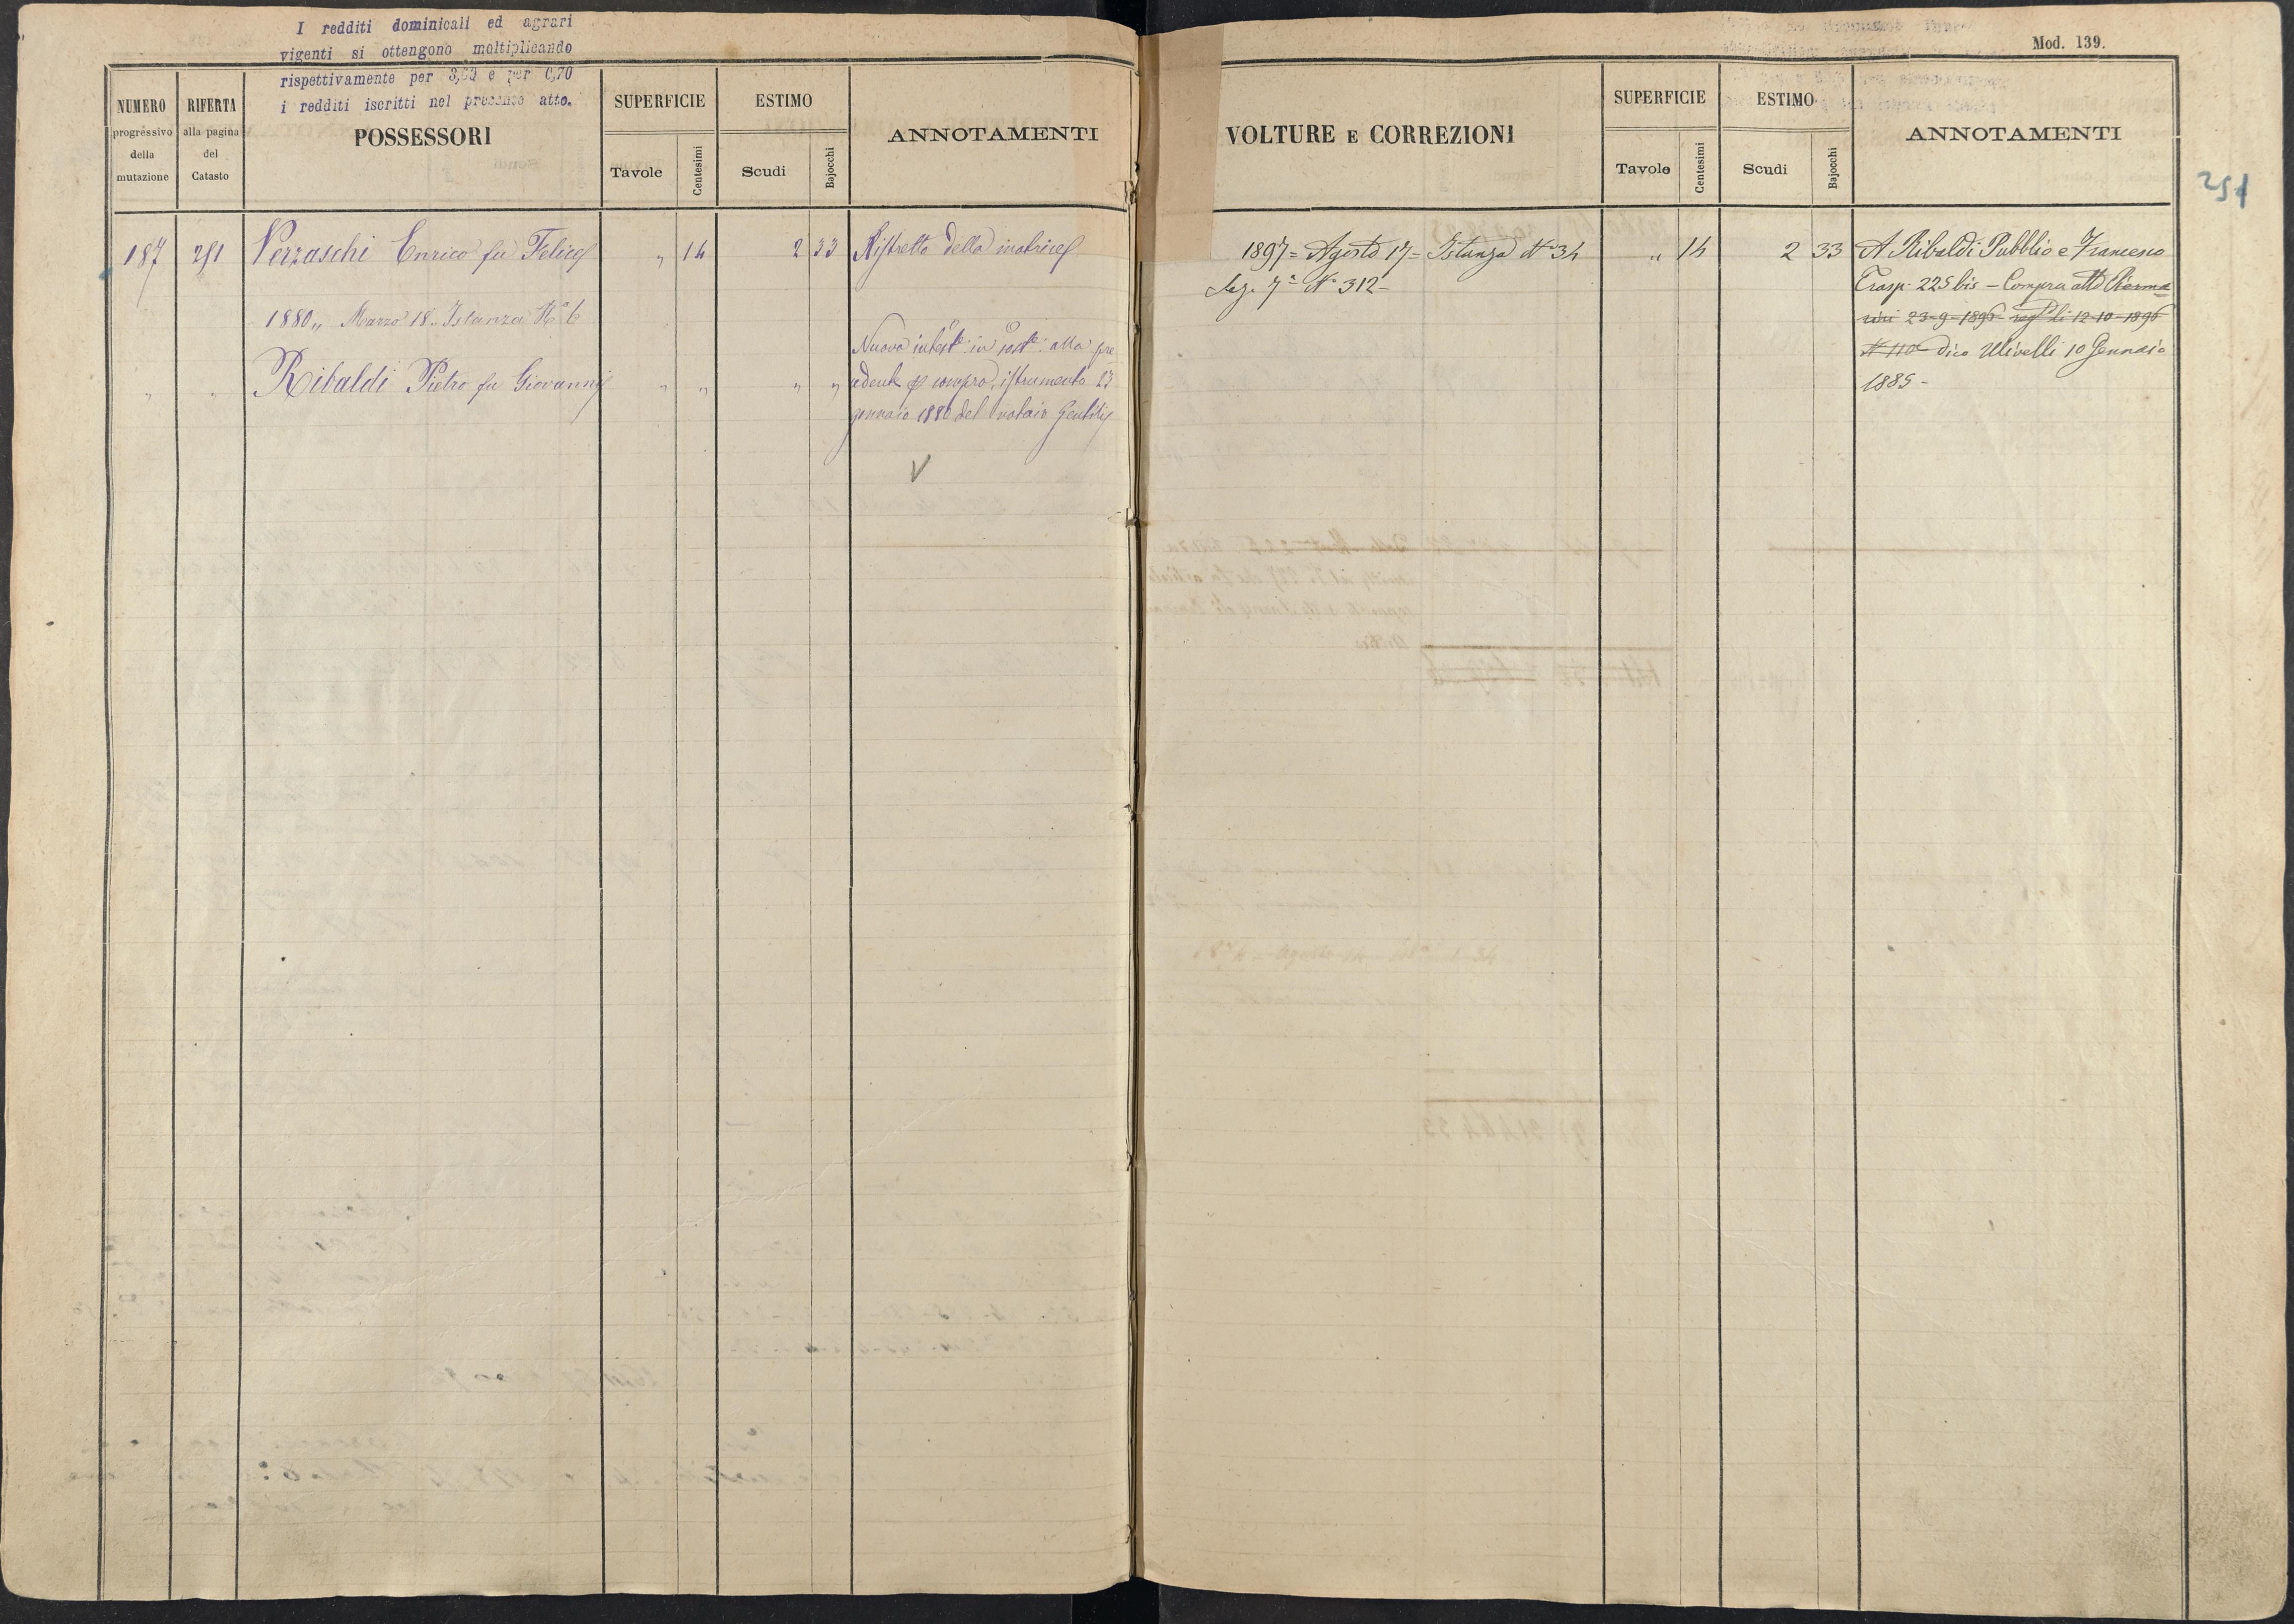 I redditi dominicali ed agrari
vigenti si ottengono moltiplicando
rispettivamente per 3,60 e per 0,70
i redditi iscritti nel presente atto.
NUMERO
progressivo
della
mutazione
RIFERTA
alla pagina
del
Catasto
POSSESSORI
SUPERFICIE
Tavole
Centesimi
ESTIMO
Scudi
Bajocchi
ANNOTAMENTI
187 251 Verzaschi Enrico fu Felice " 14 2 33 Ristretto della matrice
1880 „ Marzo 18 „ Istanza N° 6
Nuova intest.e in sost.e alla pre
" " Ribaldi Pietro fu Giovanni " " " " cedente p compra, istrumento 23
gennaio 1880 del notaio Gentili
V
Mod. 139.
VOLTURE E CORREZIONI
SUPERFICIE
Tavole
Centesimi
ESTIMO
Scudi
Bajocchi
ANNOTAMENTI
251
1897 = Agosto 17 = Istanza N° 34 " 14 2 33 A Ribaldi Pubblio e Francesco
Seg. 7a N° 312 -
Trasp. 225 bis - Compra atto
23-9-1896 - reg° li 12-10-1896
N° 110 - dico Ulivelli 10 Gennaio
1885 -